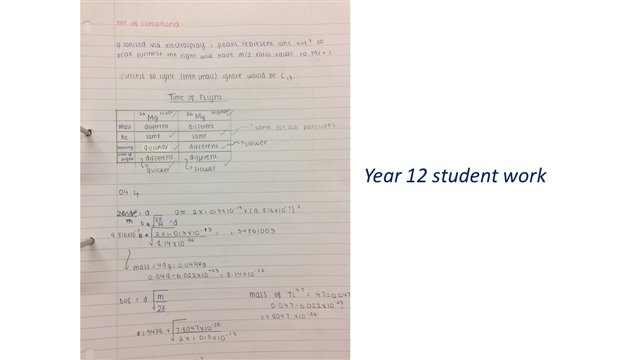 Mr of compound
if ionised via electrospray, peaks represent ions XH⁺ so
peak furthest to right will have m/z ratio equal to Mr+1.
closest to right (then small) ignore would be C₁₃
Time of Flight
²⁴Mg ²⁶Mg
Mass different different same for all particles
KE same same
velocity quicker different slower
different different
quicker slower
04.4
= d 2x1.013x10⁻¹³ x (9.816x10⁻⁷)²
m
9.816x10⁻⁷ √2x1.013x10⁻¹³ = 1.54861003
8.14x10⁻²⁶
mass = 49g = 0.049kg
0.049 ÷ 6.022x10²³ = 8.14x10⁻²⁶
tof = d √m mass of Ti⁴⁷ = 47 = 0.047
2E 0.047 ÷ 6.022x10²³
= 7.8047 x10⁻²⁶
1.5486 x √7.8047x10⁻²⁶
2x1.013x10⁻¹³
Year 12 student work